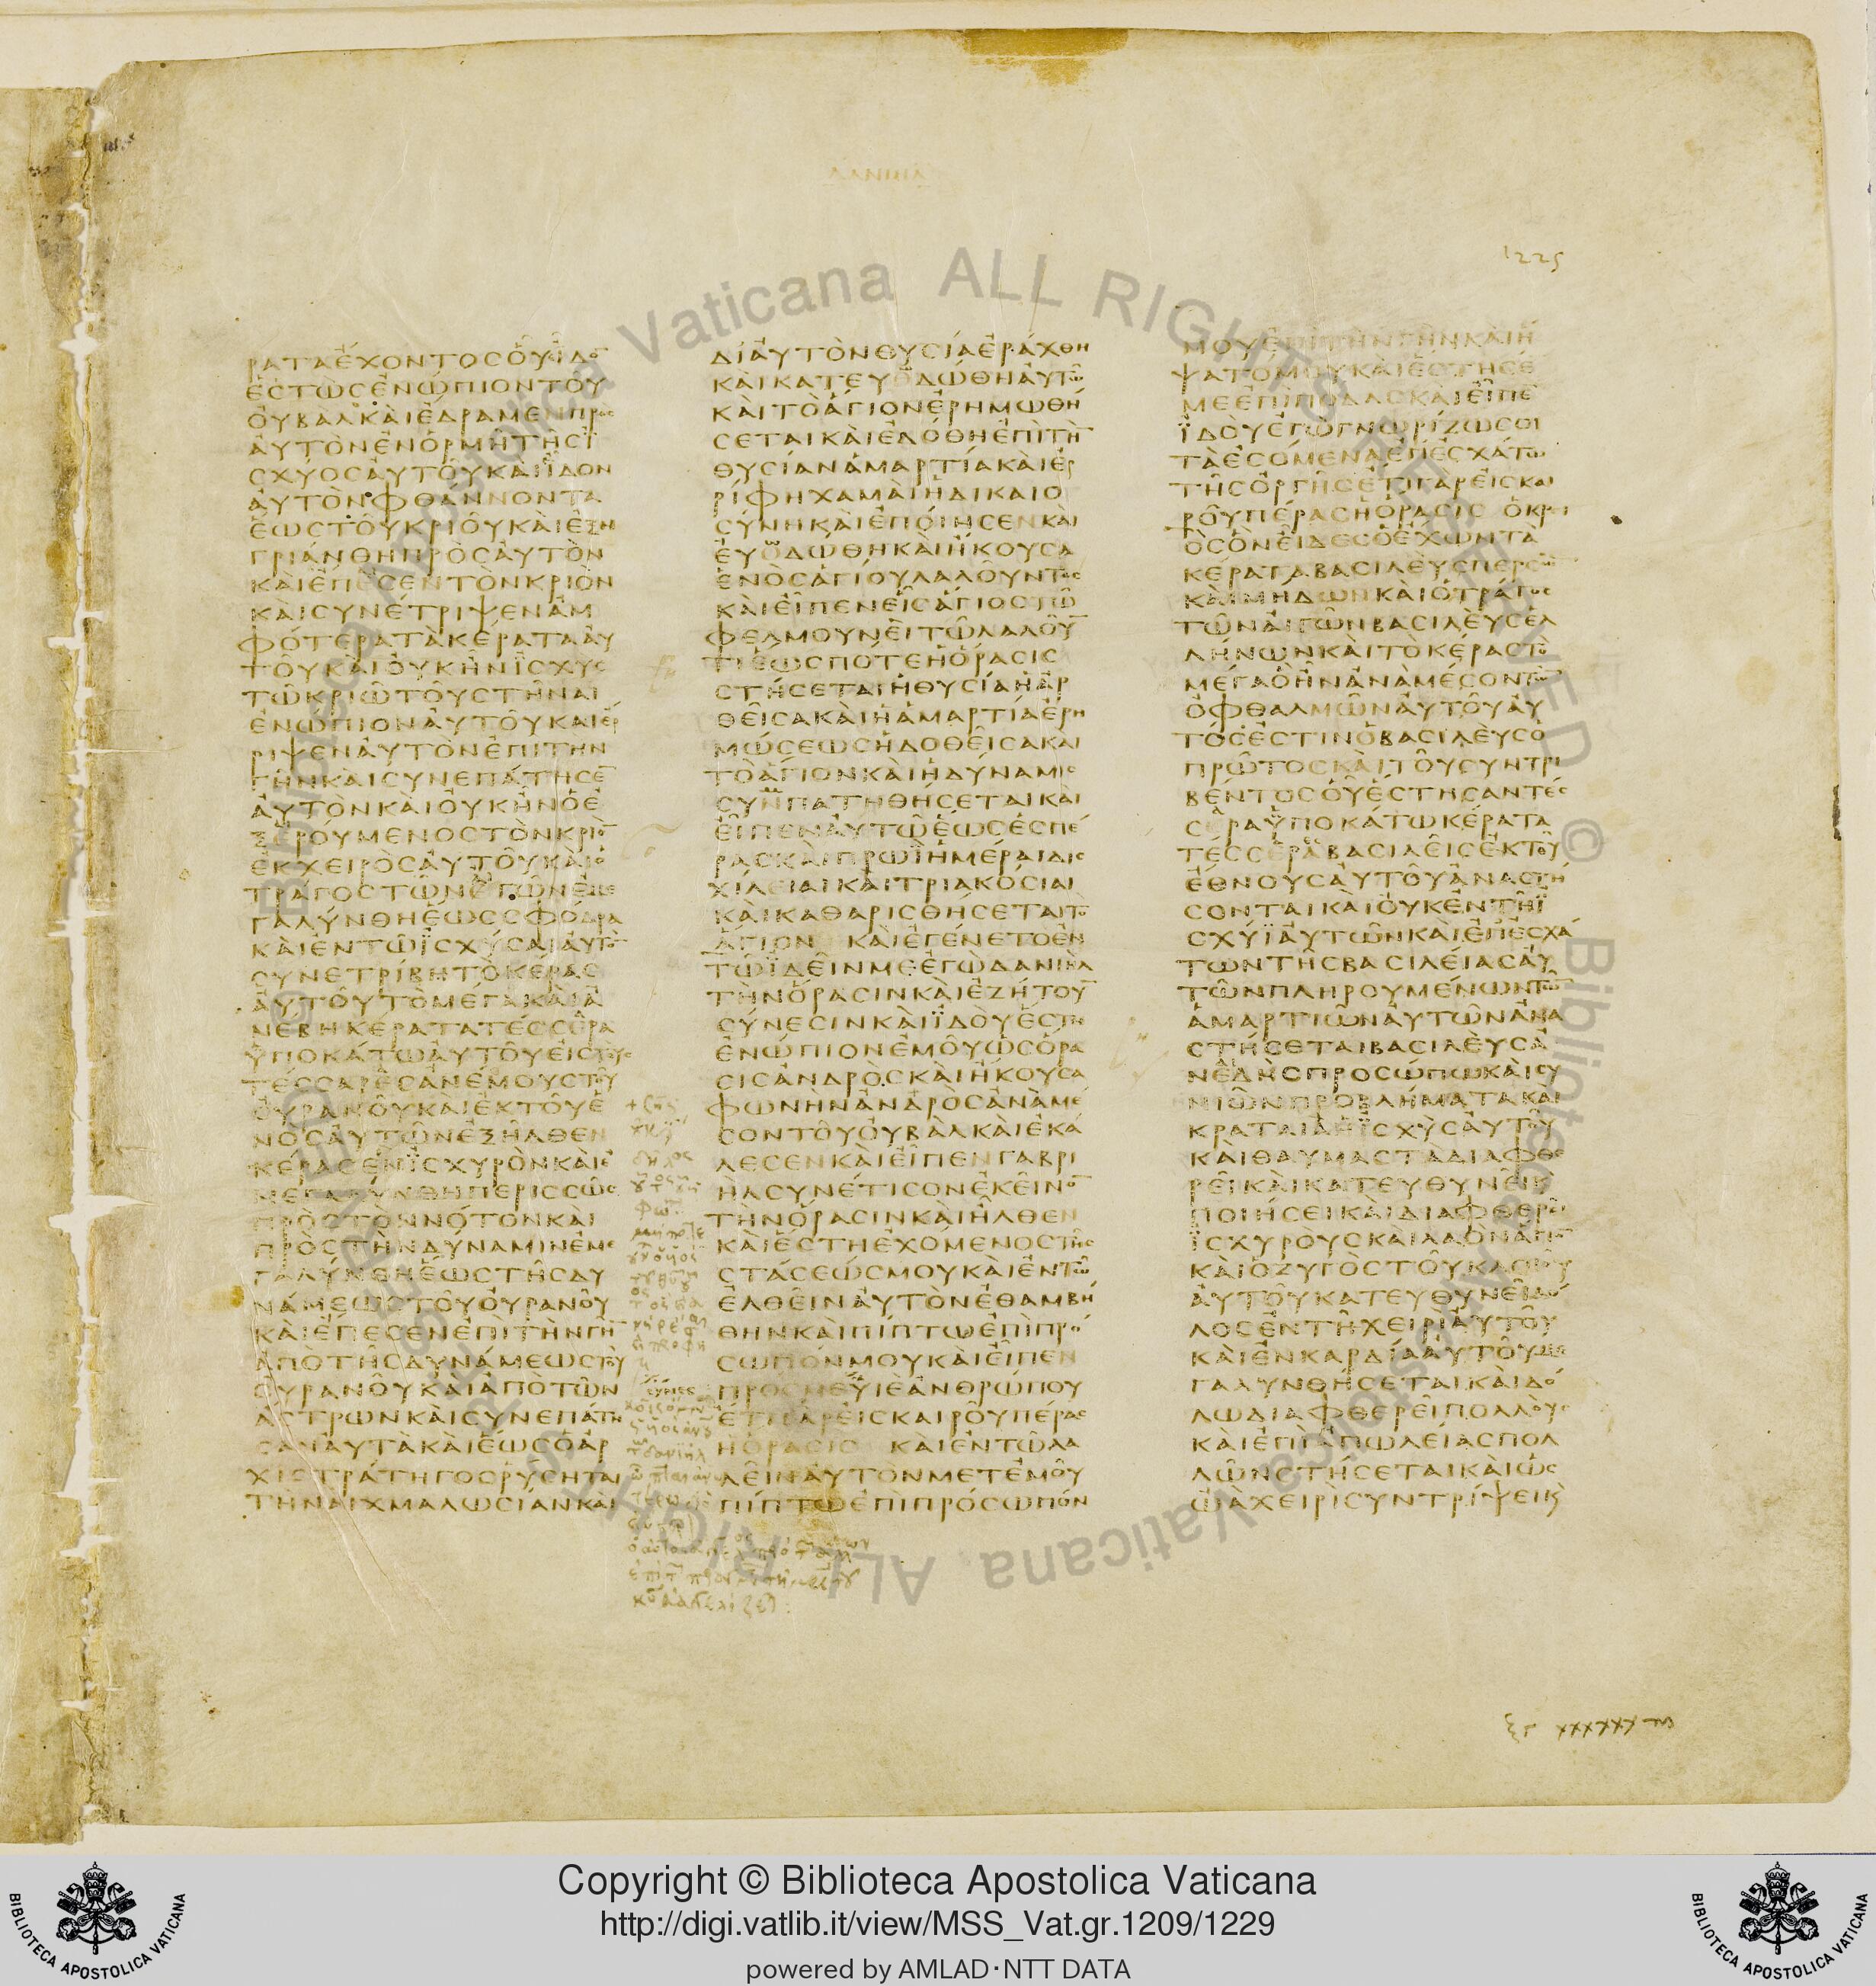 ΔΑΝΙΗΛ
1225
ΡΑΤΑΕΧΟΝΤΟΣΟΥΙΔΟ
ΕΣΤΩΣΕΝΩΠΙΟΝΤΟΥ
ΟΥΒΑΛΚΑΙΕΔΡΑΜΕΝΠΡΟΣ
ΑΥΤΟΝΕΝΟΡΜΗΤΗΣΙ
ΣΧΥΟΣΑΥΤΟΥΚΑΙΙΔΟΝ
ΑΥΤΟΝΦΘΑΝΝΟΝΤΑ
ΕΩΣΤΟΥΚΡΙΟΥΚΑΙΕΞΗ
ΓΡΙΑΝΘΗΠΡΟΣΑΥΤΟΝ
ΚΑΙΕΠΕΣΕΝΤΟΝΚΡΙΟΝ
ΚΑΙΣΥΝΕΤΡΙΨΕΝΑΜ
ΦΟΤΕΡΑΤΑΚΕΡΑΤΑΑΥ
ΤΟΥΚΑΙΟΥΚΗΝΙΣΧΥΣ
ΤΩΚΡΙΩΤΟΥΣΤΗΝΑΙ
ΕΝΩΠΙΟΝΑΥΤΟΥΚΑΙΕΡ
ΡΙΨΕΝΑΥΤΟΝΕΠΙΤΗΝ
ΓΗΝΚΑΙΣΥΝΕΠΑΤΗΣΕ
ΑΥΤΟΝΚΑΙΟΥΚΗΝΟΕ
ΞΕΡΟΥΜΕΝΟΣΤΟΝΚΡΙΟ
ΕΚΧΕΙΡΟΣΑΥΤΟΥΚΑΙΟ
ΤΡΑΓΟΣΤΩΝΕΓΩΝΕΜΕ
ΓΑΛΥΝΘΗΕΩΣΣΦΟΔΡΑ
ΚΑΙΕΝΤΩΙΣΧΥΣΑΙΑΥΤΟ
ΣΥΝΕΤΡΙΒΗΤΟΚΕΡΑΣ
ΑΥΤΟΥΤΟΜΕΓΑΚΑΙΑ
ΝΕΒΗΚΕΡΑΤΑΤΕΣΣΕΡΑ
ΥΠΟΚΑΤΩΑΥΤΟΥΕΙΣΤΟΥΣ
ΤΕΣΣΑΡΕΣΑΝΕΜΟΥΣΤΟΥ
ΟΥΡΑΝΟΥΚΑΙΕΚΤΟΥΕ
ΝΟΣΑΥΤΩΝΕΞΗΛΘΕΝ
ΚΕΡΑΣΕΝΙΣΧΥΡΟΝΚΑΙΕ
ΜΕΓΑΛΥΝΘΗΠΕΡΙΣΣΩΣ
ΠΡΟΣΤΟΝΝΟΤΟΝΚΑΙ
ΠΡΟΣΤΗΝΔΥΝΑΜΙΝΕΜΕ
ΓΑΛΥΝΘΗΕΩΣΤΗΣΔΥ
ΝΑΜΕΩΣΤΟΥΟΥΡΑΝΟΥ
ΚΑΙΕΠΕΣΕΝΕΠΙΤΗΝΓΗ
ΑΠΟΤΗΣΔΥΝΑΜΕΩΣΤΟΥ
ΟΥΡΑΝΟΥΚΑΙΑΠΟΤΩΝ
ΑΣΤΡΩΝΚΑΙΣΥΝΕΠΑΤΗ
ΣΑΝΑΥΤΑΚΑΙΕΩΣΟΑΡ
ΧΙΣΤΡΑΤΗΓΟΣΡΥΣΗΤΑΙ
ΤΗΝΑΙΧΜΑΛΩΣΙΑΝΚΑΙ
ΔΙΑΥΤΟΝΘΥΣΙΑΕΡΑΧΘΗ
ΚΑΙΚΑΤΕΥΟΔΩΘΗΑΥΤΩ
ΚΑΙΤΟΑΓΙΟΝΕΡΗΜΩΘΗ
ΣΕΤΑΙΚΑΙΕΔΟΘΗΕΠΙΤΗ
ΘΥΣΙΑΝΑΜΑΡΤΙΑΚΑΙΕΡ
ΡΙΦΗΧΑΜΑΙΗΔΙΚΑΙΟ
ΣΥΝΗΚΑΙΕΠΟΙΗΣΕΝΚΑΙ
ΕΥΟΔΩΘΗΚΑΙΗΚΟΥΣΑ
ΕΝΟΣΑΓΙΟΥΛΑΛΟΥΝΤΟΣ
ΚΑΙΕΙΠΕΝΕΙΣΑΓΙΟΣΤΩ
ΦΕΛΜΟΥΝΕΙΤΩΛΑΛΟΥ
ΤΙΕΩΣΠΟΤΕΗΟΡΑΣΙΣ
ΣΤΗΣΕΤΑΙΗΘΥΣΙΑΗΑΡ
ΘΕΙΣΑΚΑΙΗΑΜΑΡΤΙΑΕΡΗ
ΜΩΣΕΩΣΗΔΟΘΕΙΣΑΚΑΙ
ΤΟΑΓΙΟΝΚΑΙΗΔΥΝΑΜΙΣ
ΣΥΝΠΑΤΗΘΗΣΕΤΑΙΚΑΙ
ΕΙΠΕΝΑΥΤΩΕΩΣΕΣΠΕ
ΡΑΣΚΑΙΠΡΩΙΗΜΕΡΑΙΔΙΣ
ΧΙΛΕΙΑΙΚΑΙΤΡΙΑΚΟΣΙΑΙ
ΚΑΙΚΑΘΑΡΙΣΘΗΣΕΤΑΙΤΟ
ΑΓΙΟΝ ΚΑΙΕΓΕΝΕΤΟΕΝ
ΤΩΙΔΕΙΝΜΕΕΓΩΔΑΝΙΗΛ
ΤΗΝΟΡΑΣΙΝΚΑΙΕΖΗΤΟΥ
ΣΥΝΕΣΙΝΚΑΙΙΔΟΥΕΣΤΗ
ΕΝΩΠΙΟΝΕΜΟΥΩΣΟΡΑ
ΣΙΣΑΝΔΡΟΣΚΑΙΗΚΟΥΣΑ
ΦΩΝΗΝΑΝΔΡΟΣΑΝΑΜΕ
ΣΟΝΤΟΥΟΥΒΑΛΚΑΙΕΚΑ
ΛΕΣΕΝΚΑΙΕΙΠΕΝΓΑΒΡΙ
ΗΛΣΥΝΕΤΙΣΟΝΕΚΕΙΝΟ
ΤΗΝΟΡΑΣΙΝΚΑΙΗΛΘΕΝ
ΚΑΙΕΣΤΗΕΧΟΜΕΝΟΣΤΗΣ
ΣΤΑΣΕΩΣΜΟΥΚΑΙΕΝΤΩ
ΕΛΘΕΙΝΑΥΤΟΝΕΘΑΜΒΗ
ΘΗΝΚΑΙΠΙΠΤΩΕΠΙΠΡΟ
ΣΩΠΟΝΜΟΥΚΑΙΕΙΠΕΝ
ΠΡΟΣΜΕΥΙΕΑΝΘΡΩΠΟΥ
ΕΤΙΓΑΡΕΙΣΚΑΙΡΟΥΠΕΡΑΣ
ΗΟΡΑΣΙΣ ΚΑΙΕΝΤΩΛΑ
ΛΕΙΝΑΥΤΟΝΜΕΤΕΜΟΥ
ΠΙΠΤΩΕΠΙΠΡΟΣΩΠΟΝ
ΜΟΥΕΠΙΤΗΝΓΗΝΚΑΙΗ
ΨΑΤΟΜΟΥΚΑΙΕΣΤΗΣΕ
ΜΕΕΠΙΠΟΔΑΣΚΑΙΕΙΠΕ
ΙΔΟΥΕΓΩΓΝΩΡΙΖΩΣΟΙ
ΤΑΕΣΟΜΕΝΑΕΠΕΣΧΑΤΩ
ΤΗΣΟΡΓΗΣΕΤΙΓΑΡΕΙΣΚΑΙ
ΡΟΥΠΕΡΑΣΗΟΡΑΣΙΣ ΟΚΡΙ
ΟΣΟΝΕΙΔΕΣΟΕΧΩΝΤΑ
ΚΕΡΑΤΑΒΑΣΙΛΕΥΣΠΕΡΣΩ
ΚΑΙΜΗΔΩΝΚΑΙΟΤΡΑΓΟΣ
ΤΩΝΑΙΓΩΝΒΑΣΙΛΕΥΣΕΛ
ΛΗΝΩΝΚΑΙΤΟΚΕΡΑΣΤΟ
ΜΕΓΑΟΗΝΑΝΑΜΕΣΟΝΤΩ
ΟΦΘΑΛΜΩΝΑΥΤΟΥΑΥ
ΤΟΣΕΣΤΙΝΟΒΑΣΙΛΕΥΣΟ
ΠΡΩΤΟΣΚΑΙΤΟΥΣΥΝΤΡΙ
ΒΕΝΤΟΣΟΥΕΣΤΗΣΑΝΤΕΣ
ΣΕΡΑΥΠΟΚΑΤΩΚΕΡΑΤΑ
ΤΕΣΣΕΡΑΒΑΣΙΛΕΙΣΕΚΤΟΥ
ΕΘΝΟΥΣΑΥΤΟΥΑΝΑΣΤΗ
ΣΟΝΤΑΙΚΑΙΟΥΚΕΝΤΗΙ
ΣΧΥΙΑΥΤΩΝΚΑΙΕΠΕΣΧΑ
ΤΩΝΤΗΣΒΑΣΙΛΕΙΑΣΑΥ
ΤΩΝΠΛΗΡΟΥΜΕΝΩΝΤΩ
ΑΜΑΡΤΙΩΝΑΥΤΩΝΑΝΑ
ΣΤΗΣΕΤΑΙΒΑΣΙΛΕΥΣΑ
ΝΕΔΗΣΠΡΟΣΩΠΩΚΑΙΣΥ
ΝΙΩΝΠΡΟΒΛΗΜΑΤΑΚΑΙ
ΚΡΑΤΑΙΑΗΙΣΧΥΣΑΥΤΟΥ
ΚΑΙΘΑΥΜΑΣΤΑΔΙΑΦΘΕ
ΡΕΙΚΑΙΚΑΤΕΥΘΥΝΕΙΚ
ΠΟΙΗΣΕΙΚΑΙΔΙΑΦΘΕΡΕΙ
ΙΣΧΥΡΟΥΣΚΑΙΛΑΟΝΑΓΙΟ
ΚΑΙΟΖΥΓΟΣΤΟΥΚΛΟΙΟΥ
ΑΥΤΟΥΚΑΤΕΥΘΥΝΕΙΔΟ
ΛΟΣΕΝΤΗΧΕΙΡΙΑΥΤΟΥ
ΚΑΙΕΝΚΑΡΔΙΑΑΥΤΟΥΜΕ
ΓΑΛΥΝΘΗΣΕΤΑΙΚΑΙΔΟ
ΛΩΔΙΑΦΘΕΡΕΙΠΟΛΛΟΥΣ
ΚΑΙΕΠΙΑΠΩΛΕΙΑΣΠΟΛ
ΛΩΝΣΤΗΣΕΤΑΙΚΑΙΩΣ
ΩΑΧΕΙΡΙΣΥΝΤΡΙΨΕΙΚ
Copyright © Biblioteca Apostolica Vaticana
http://digi.vatlib.it/view/MSS_Vat.gr.1209/1229
powered by AMLAD·NTT DATA
BIBLIOTECA APOSTOLICA VATICANA
BIBLIOTECA APOSTOLICA VATICANA
© Biblioteca Apostolica Vaticana ALL RIGHTS RESERVED © Biblioteca Apostolica Vaticana ALL RIGHTS RESERVED